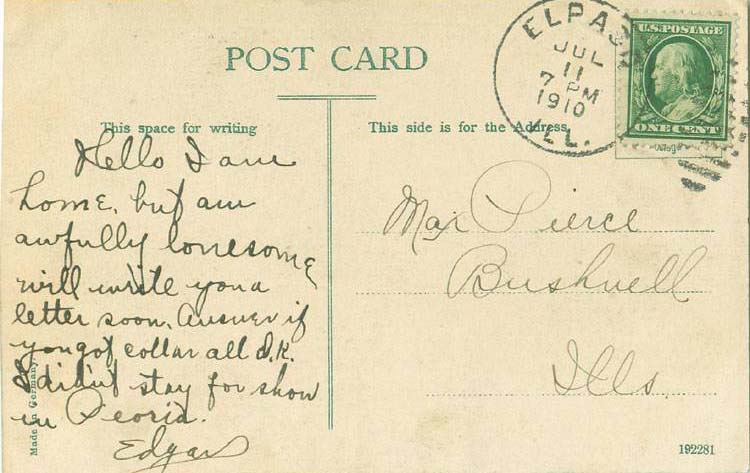 POST CARD
ELPASO
JUL
11
7 PM
1910
ILL.
U.S. POSTAGE
ONE CENT
This space for writing
This side is for the Address
Hello I am
home, but am
awfully lonesome
will write you a
letter soon. Answer if
you got collar all O.K.
I didn't stay for show
in Peoria.
Edgar
Max Pierce
Bushnell
Ills.
Made in Germany
192281